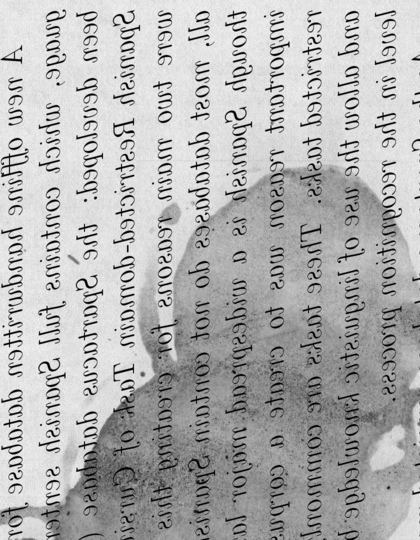 A new offline handwritten database for
guage, which contains full Spanish senten
been developed: the Spartacus database (
Spanish Restricted-domain Task of Cursi
were two main reasons for creating this
all, most databases do not contain Spanis
though Spanish is a widespread major la
important reason was to create a corpus
restricted tasks. These tasks are common
and allow the use of linguistic knowledge b
level in the recognition process.